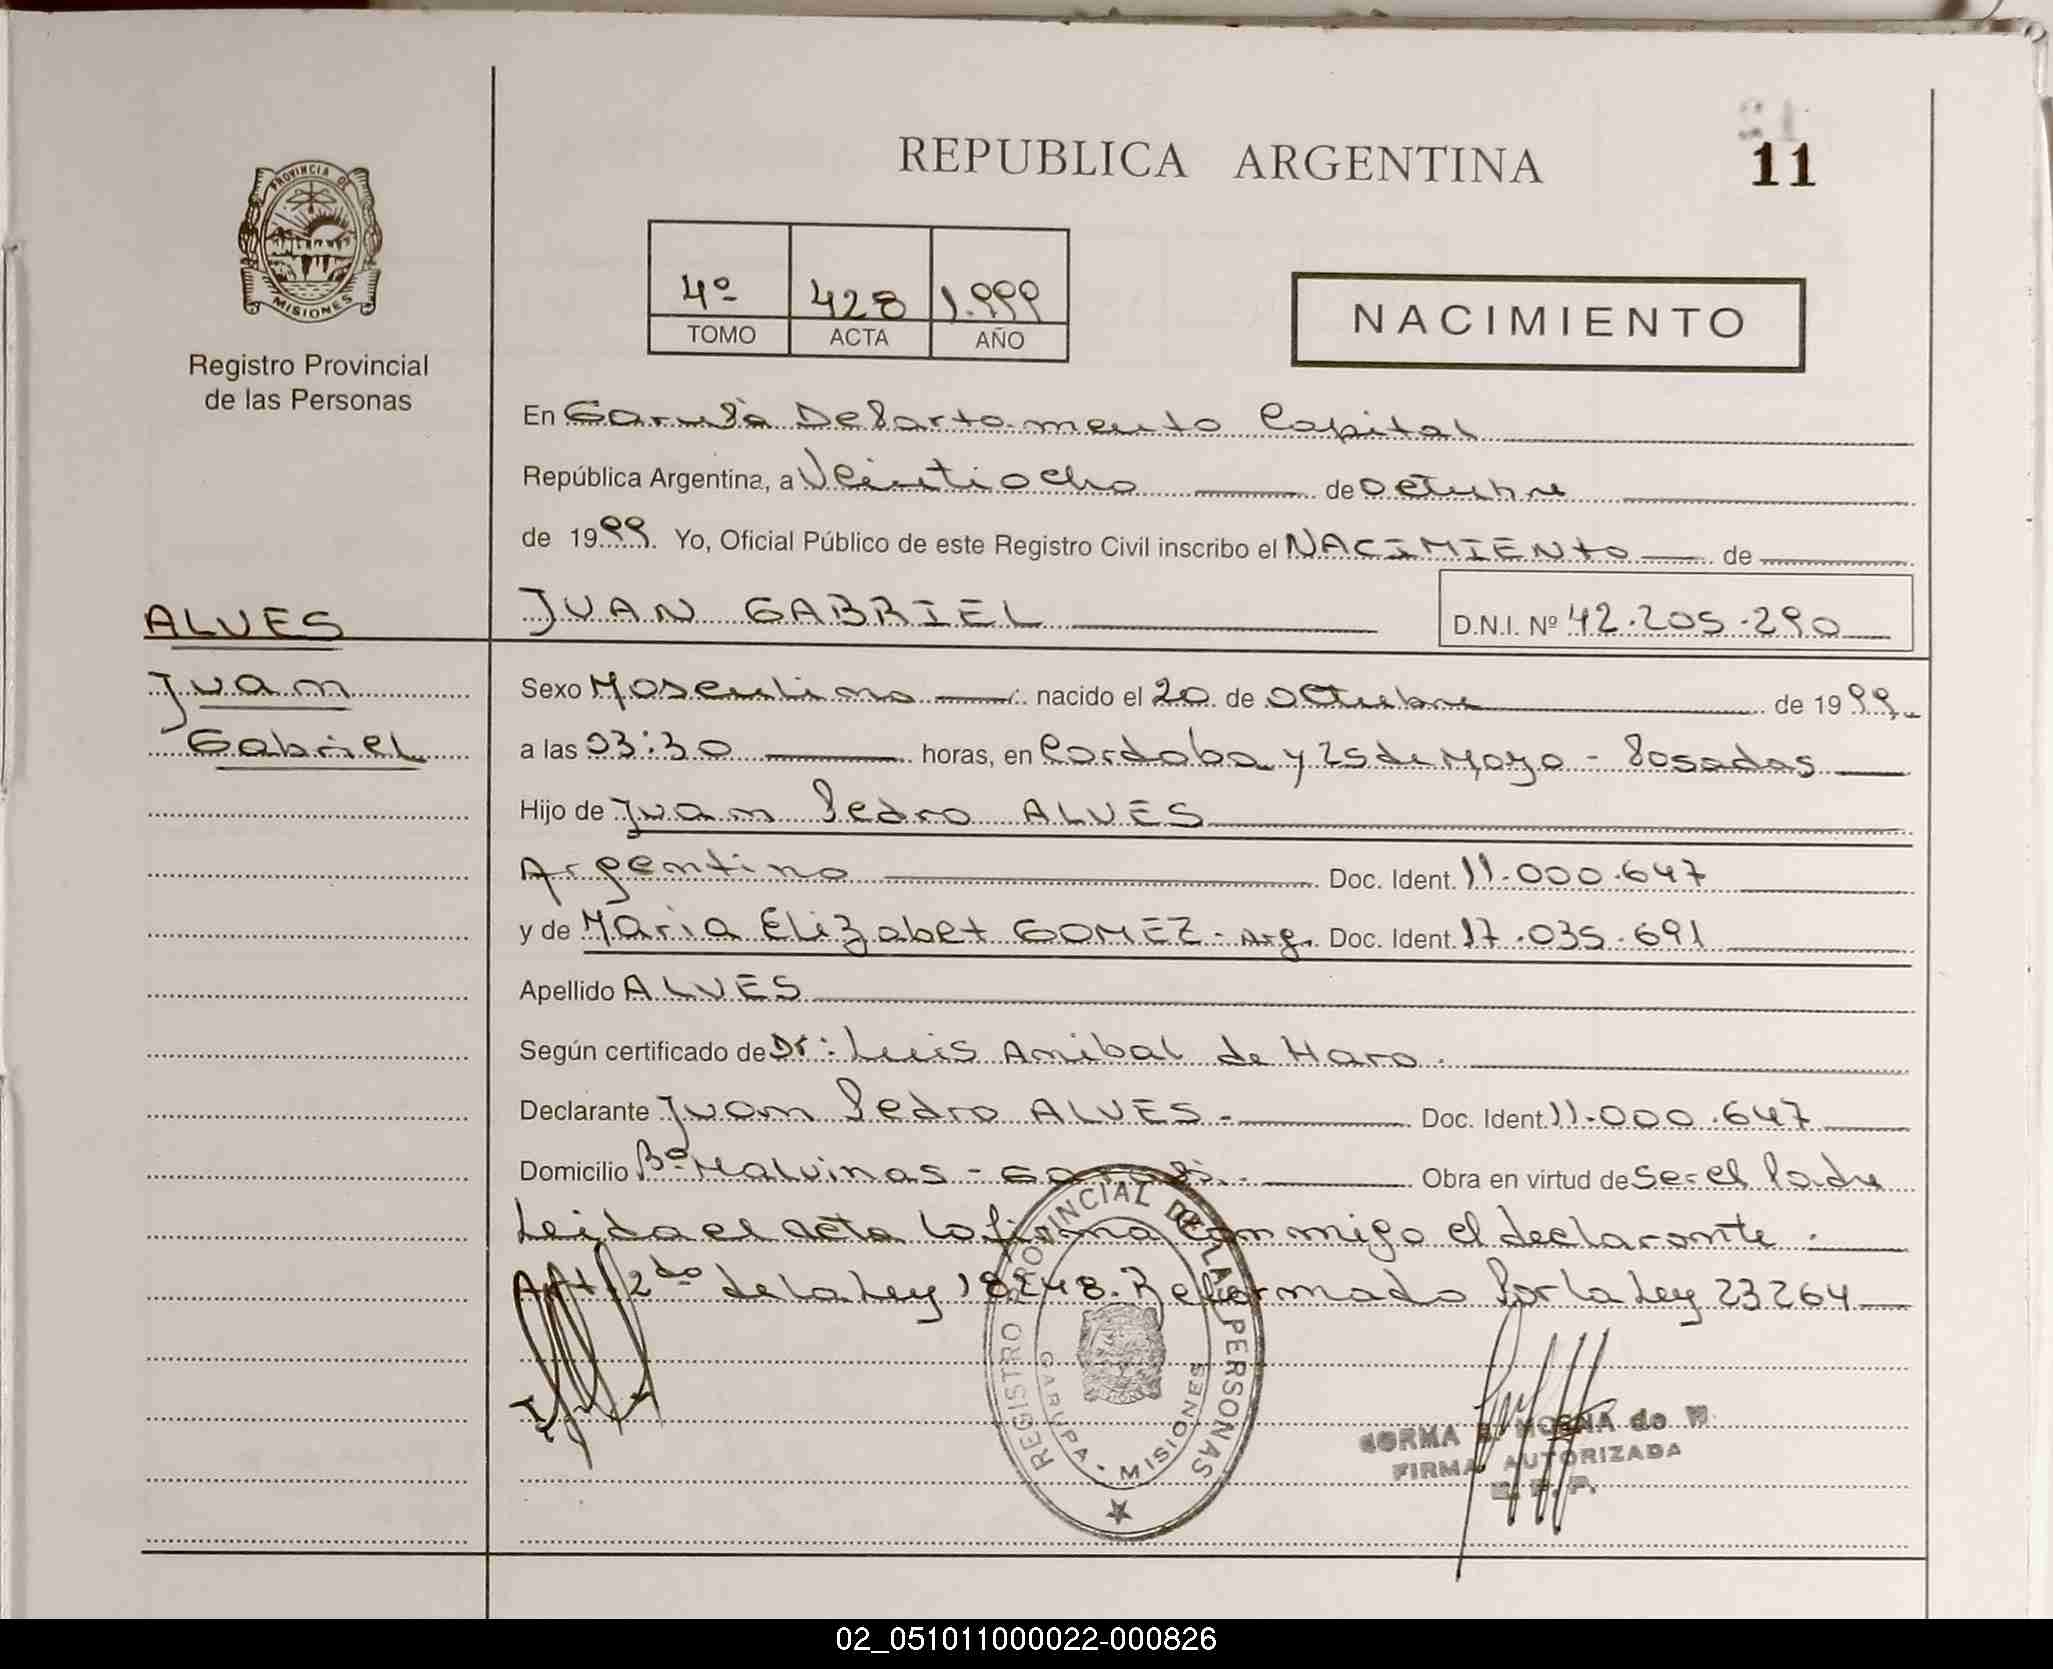 REPUBLICA ARGENTINA
11
PROVINCIA DE
MISIONES
Registro Provincial
de las Personas
4º 428 1.999
TOMO ACTA AÑO
NACIMIENTO
En Garupá Departamento Capital
República Argentina, a Veintiocho de octubre
de 1999. Yo, Oficial Público de este Registro Civil inscribo el NACIMIENto de
ALVES
JUAN GABRIEL
D.N.I. Nº 42.205.290
Juan
Gabriel
Sexo Masculino nacido el 20 de octubre de 1999.
a las 03:30 horas, en Cordoba y 25 de Mayo - Posadas
Hijo de Juan Pedro ALVES
Argentino Doc. Ident. 11.000.647
y de Maria Elizabet GOMEZ - Arg. Doc. Ident. 17.035.691
Apellido ALVES
Según certificado de Dr: Luis Anibal de Haro.
Declarante Juan Pedro ALVES - Doc. Ident. 11.000.647
Domicilio Bº Malvinas - Garupá. Obra en virtud de ser el Padre
Leida el acta la firma conmigo el declarante.
Art. 2do de la Ley 18248. Reformado Por la Ley 23264
REGISTRO PROVINCIAL DE LAS PERSONAS
GARUPA - MISIONES
NORMA de W
FIRMA AUTORIZADA
02_051011000022-000826